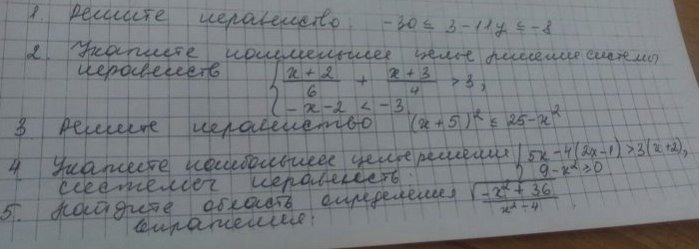 1. Решите неравенство: -30 ≤ 3-11y ≤ -8
2. Укажите наименьшее целые решение системы
неравенств { (x+2)/6 + (x+3)/4 > 3,
-x-2 < -3
3 Решите неравенство (x+5)² ≤ 25-x²
4 Укажите наибольшее целые решения { 5x-4(2x-1) > 3(x+2),
системы неравенств. 9-x² ≥ 0
5. Найдите область определения √((-x²+36)/(x²-4))
выражения: